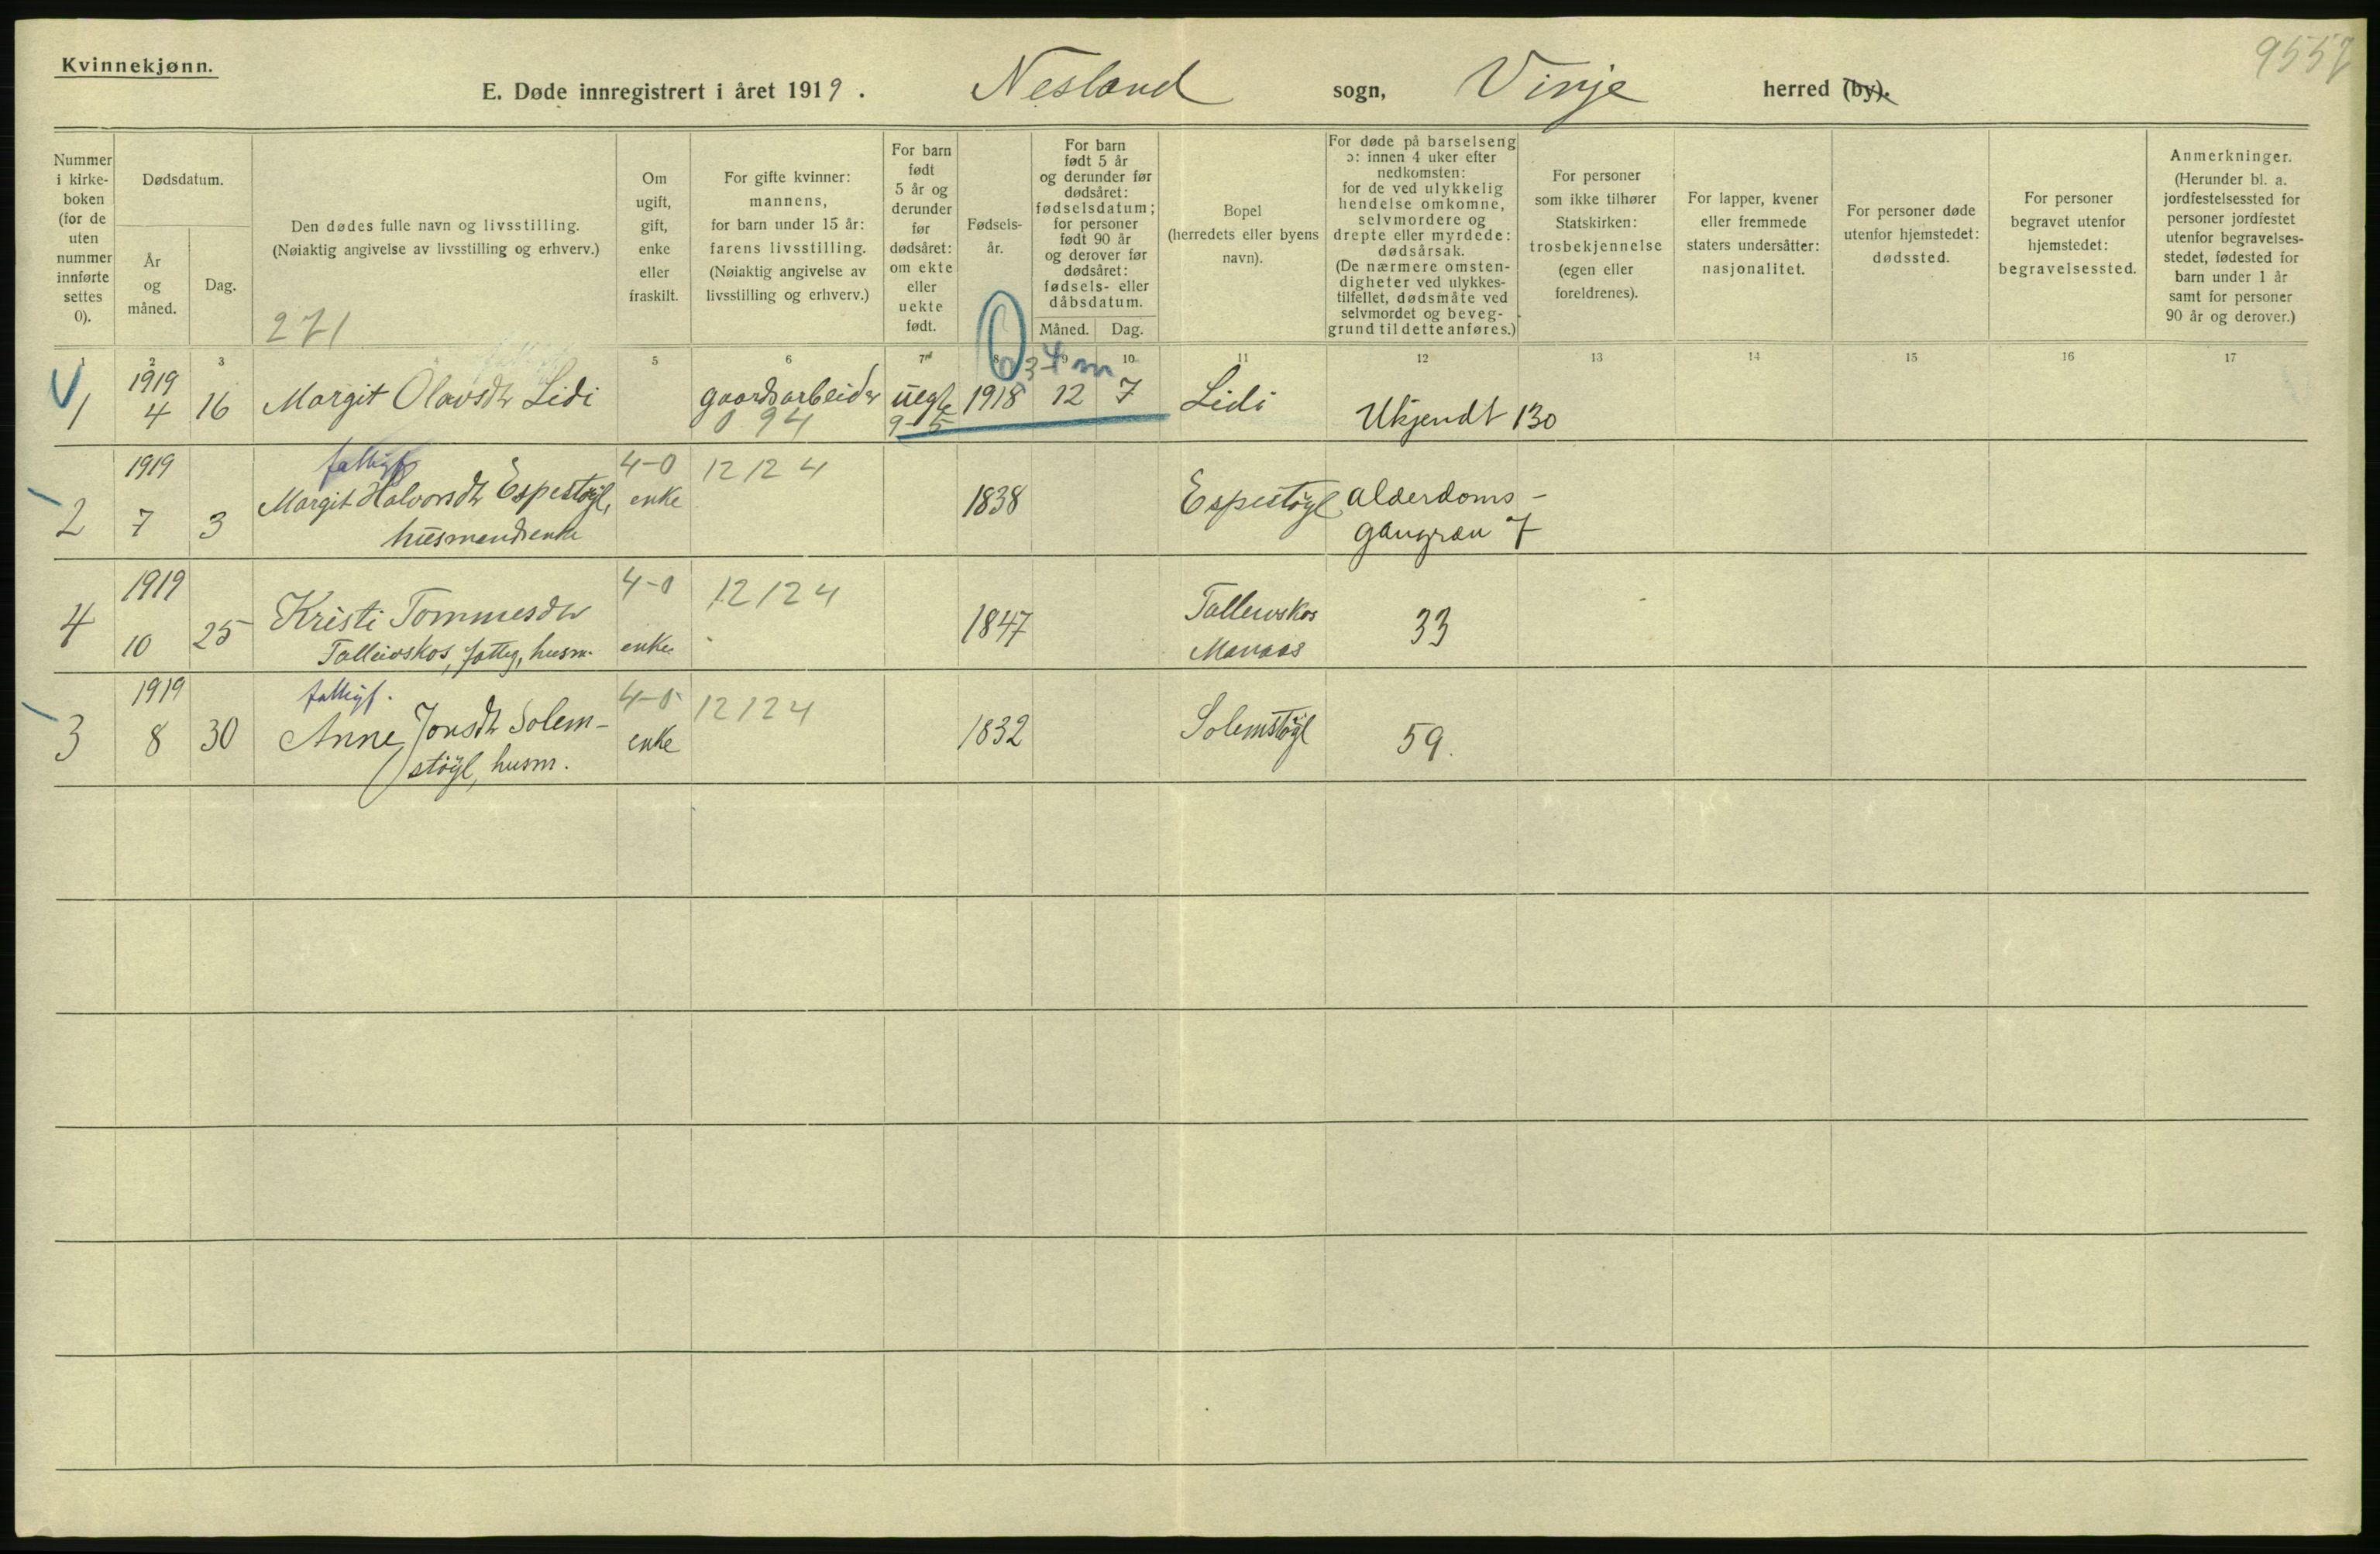 9552
Kvinnekjønn.
E. Døde innregistrert i året 1919. Nesland sogn, Vinje herred (by).
Nummer i kirke-boken (for de uten nummer innførte settes 0).
Dødsdatum.
År og måned.
Dag.
Den dødes fulle navn og livsstilling.
(Nøiaktig angivelse av livsstilling og erhverv.)
271
Om ugift, gift, enke eller fraskilt.
For gifte kvinner: mannens, for barn under 15 år: farens livsstilling. (Nøiaktig angivelse av livsstilling og erhverv.)
For barn født 5 år og derunder før dødsåret: om ekte eller uekte født.
Fødsels-år.
For barn født 5 år og derunder før dødsåret: fødselsdatum; for personer født 90 år og derover før dødsåret: fødsels- eller dåbsdatum.
Måned. Dag.
Bopel (herredets eller byens navn).
For døde på barselseng ɔ: innen 4 uker efter nedkomsten: for de ved ulykkelig hendelse omkomne, selvmordere og drepte eller myrdede: dødsårsak. (De nærmere omsten-digheter ved ulykkes-tilfellet, dødsmåte ved selvmordet og beveg-grund til dette anføres.)
For personer som ikke tilhører Statskirken: trosbekjennelse (egen eller foreldrenes).
For lapper, kvener eller fremmede staters undersåtter: nasjonalitet.
For personer døde utenfor hjemstedet: dødssted.
For personer begravet utenfor hjemstedet: begravelsessted.
Anmerkninger. (Herunder bl. a. jordfestelsessted for personer jordfestet utenfor begravelses-stedet, fødested for barn under 1 år samt for personer 90 år og derover.)
1 2 3 5 6 7 8 9 10 11 12 13 14 15 16 17
0 3 4 m
1 1919 4 16 Margit Olavsdtr Lidi gaardsarbeider uegte 1918 12 7 Lidi Ukjendt 130
094 9-5
2 1919 7 3 fattigf
Margit Halvorsdtr Espestøyl, husmandsenke 4-0 enke 12 12 4 1838 Espestøyl alderdoms-
gangræn 7
4 1919 10 25 Kristi Tommesdtr
Talleivskos, fattig, husm. 4-0 enke 12 12 4 1847 Talleivskos
Manaas 33
3 1919 8 30 fattigf.
Anne Jonsdtr Solem-
støyl, husm. 4-0 enke 12 12 4 1832 Solemstøyl 59.